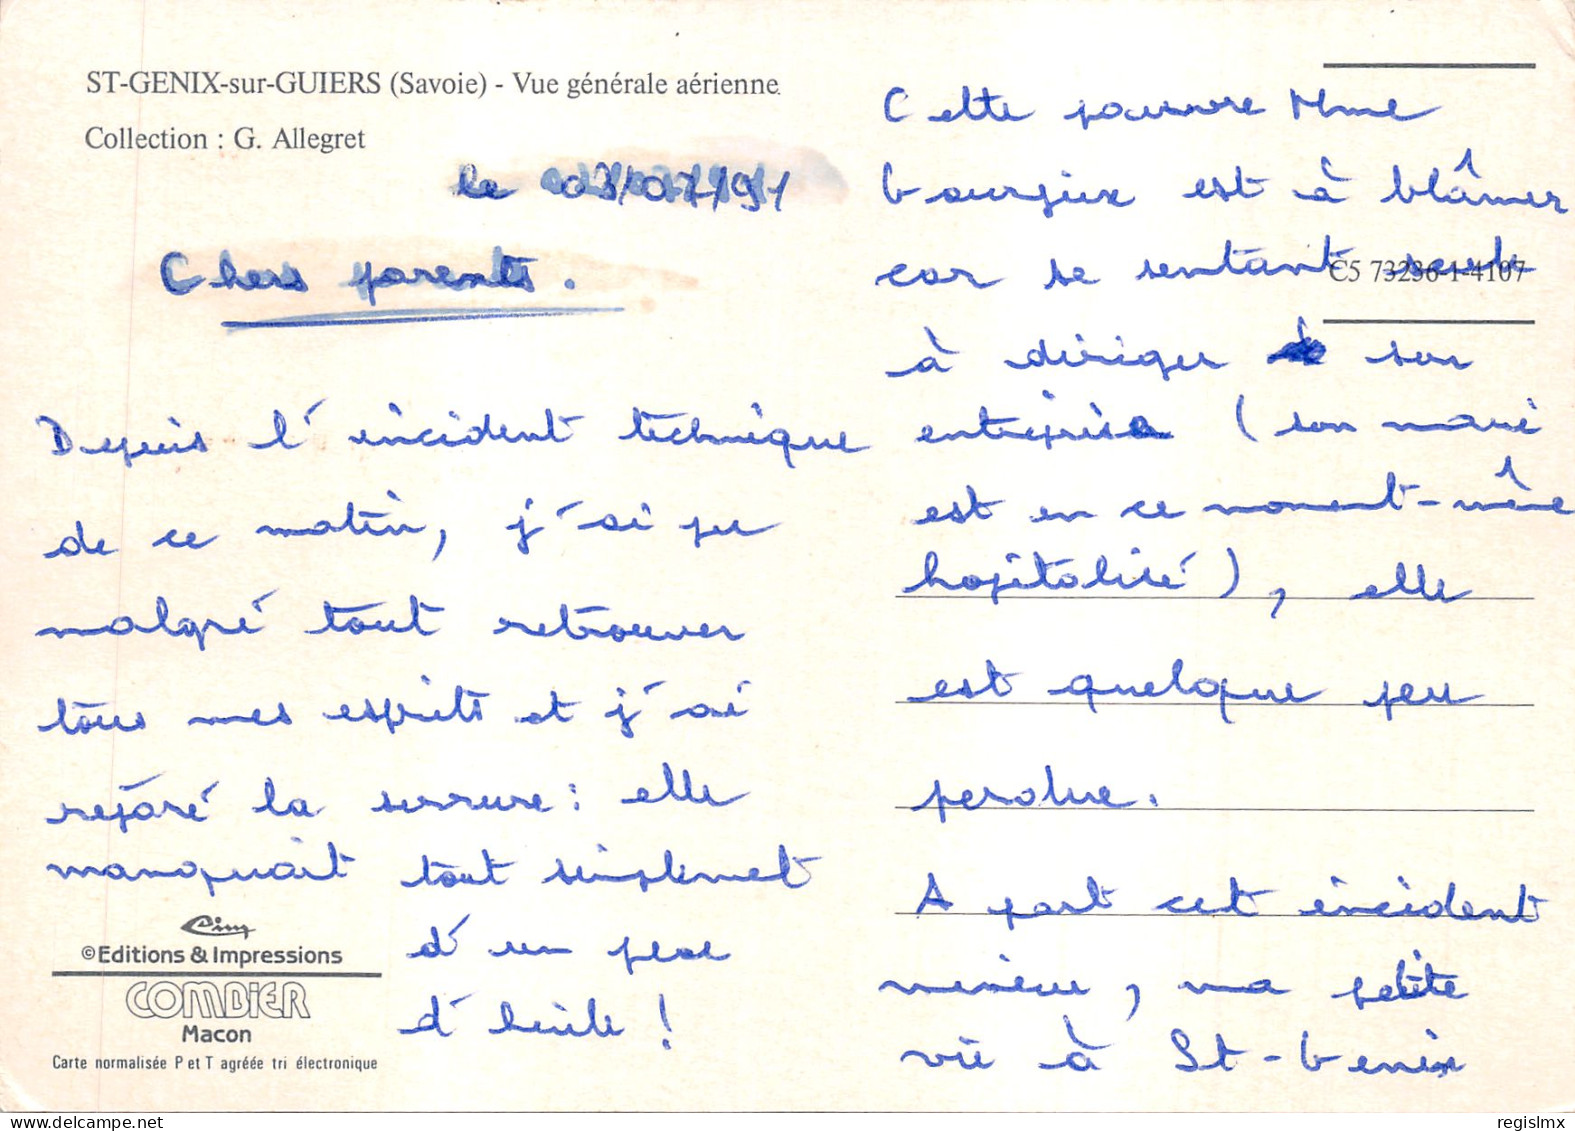 ST-GENIX-sur-GUIERS (Savoie) - Vue générale aérienne
Collection : G. Allegret
le 03/07/91
Chers parents.
Depuis l'incident technique
de ce matin, j'ai pu
malgré tout retrouver
tous mes esprits et j'ai
réparé la serrure : elle
manquait tout simplement
d'un peu
d'huile !
Cim
©Editions & Impressions
COMBIER
Macon
Carte normalisée P et T agréée tri électronique
Cette pauvre Mme
est à blâmer
car se sentant seule
C5 73236-1-4107
à diriger son
entreprise (son mari
est en ce moment-même
hospitalisé), elle
est quelque peu
perdue.
A part cet incident
mineur, ma petite
vie à St-Genix
regislmx